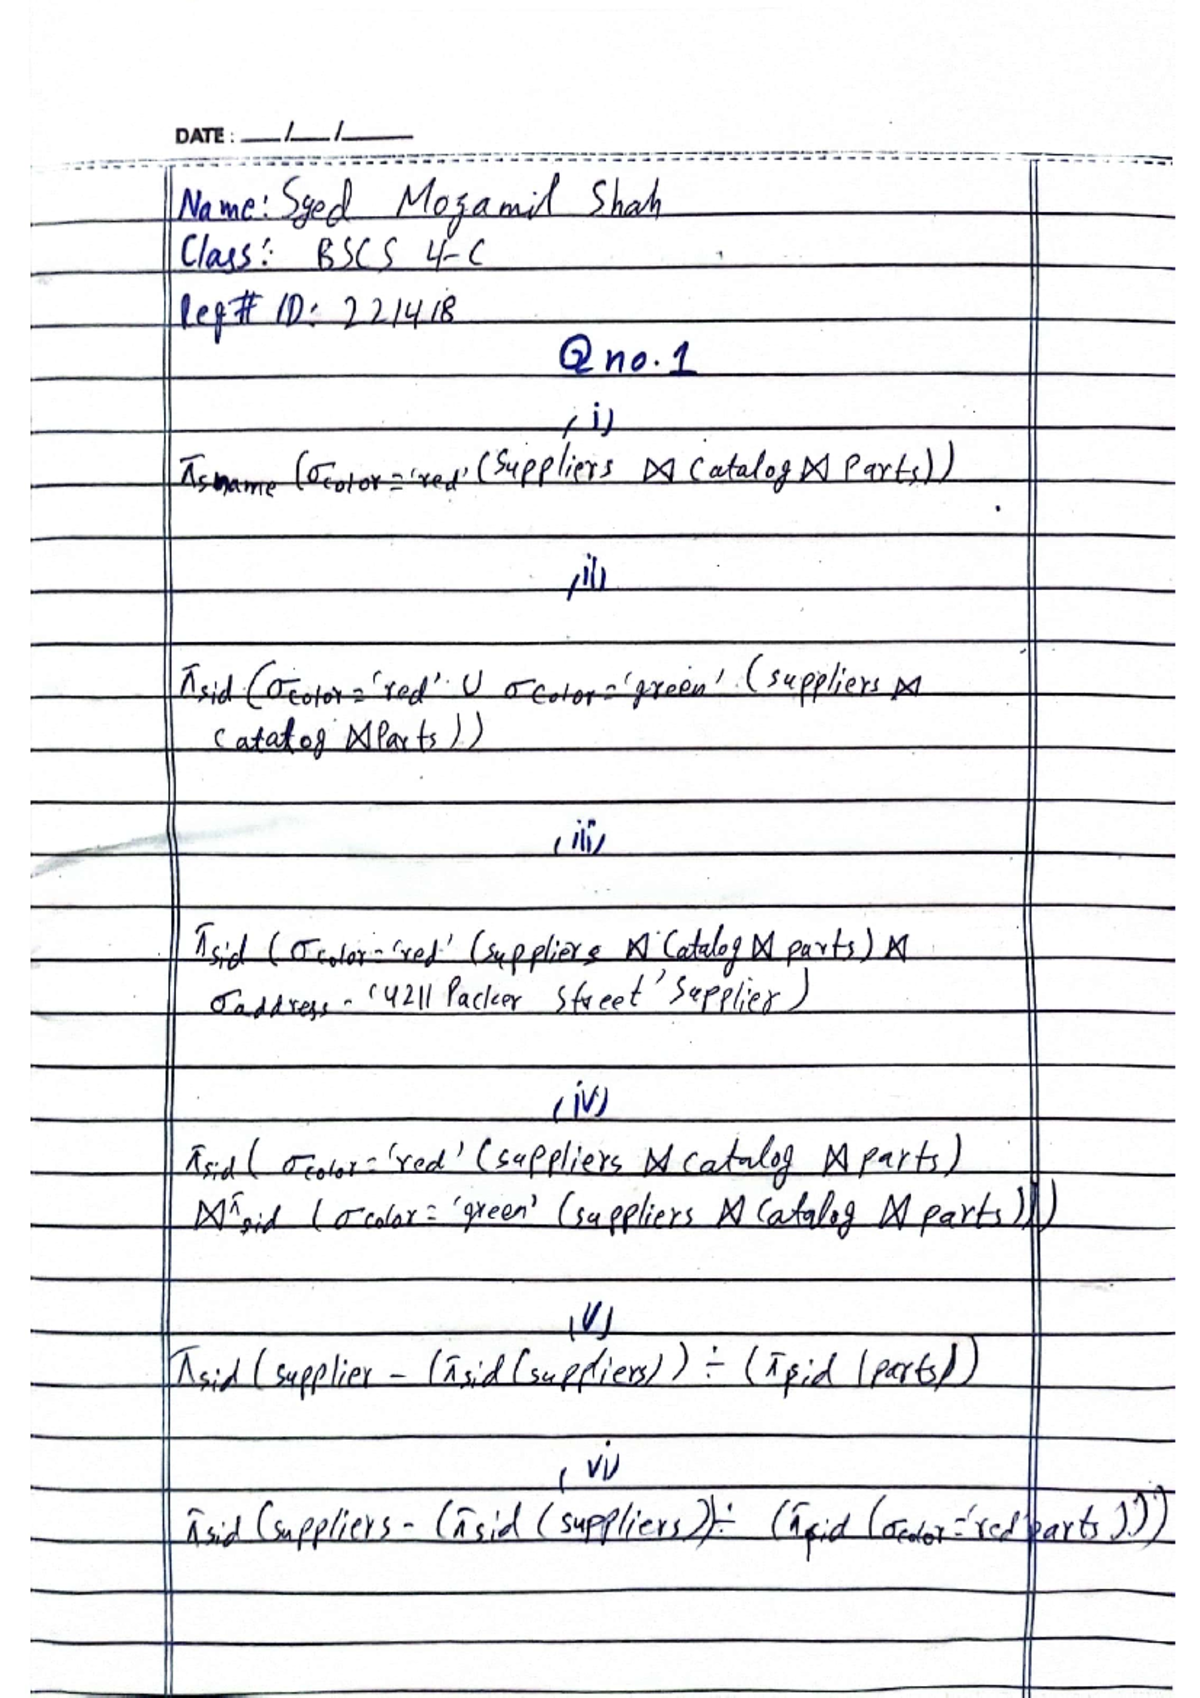 DATE: __/__/____
Name: Syed Mozamil Shah
Class: BSCS 4-C
Reg# ID: 221418
Q no. 1
(i)
πsname (σcolor='red' (Suppliers ⋈ Catalog ⋈ Parts))
(ii)
πsid (σcolor='red' ∪ σcolor='green' (suppliers ⋈
Catalog ⋈ Parts))
(iii)
πsid (σcolor='red' (suppliers ⋈ Catalog ⋈ parts) ⋈
σaddress = '4211 Packer Street' Supplier)
(iv)
πsid ( σcolor='red' (suppliers ⋈ catalog ⋈ parts)
⋈ πsid (σcolor='green' (suppliers ⋈ Catalog ⋈ parts)))
(v)
πsid (supplier - (πsid (suppliers)) ÷ (πpid (parts))
(vi)
πsid (suppliers - (πsid (suppliers)) ÷ (πpid (σcolor='red' parts)))